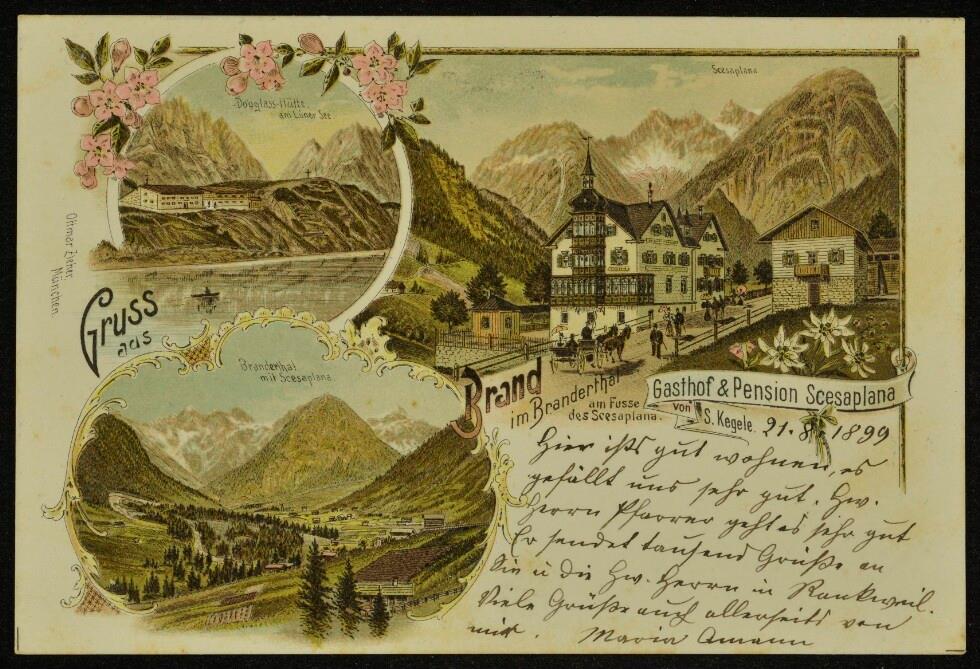 Douglass-Hütte
am Lüner See
Scesaplana
Ottmar Zieher, München.
Gruss
aus
Brand
im Branderthal
am Fusse
des Scesaplana.
Gasthof & Pension Scesaplana
von S. Kegele.
Branderthal
mit Scesaplana.
21.8.1899
Hier ists gut wohnen, es
gefällt uns sehr gut. Hw.
Herrn Pfarrer geht es sehr gut
Er sendet tausend Grüße an
Sie u die Hw. Herrn in Rankweil.
Viele Grüße auch allerseits von
mir. Maria Amann